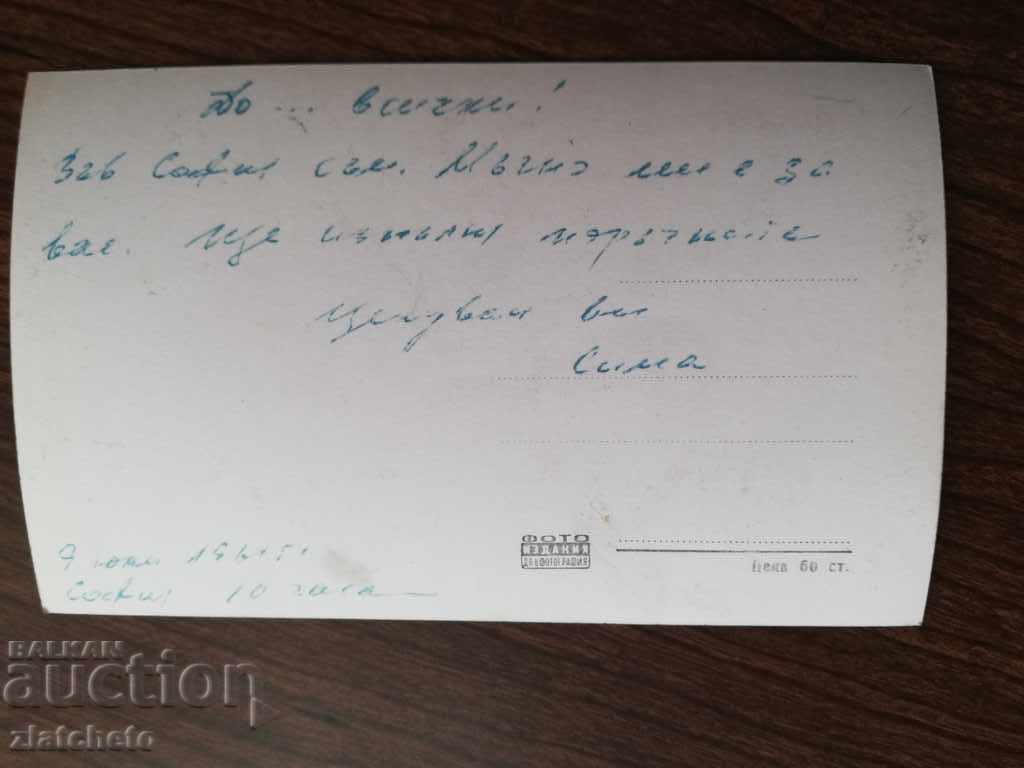 До ... всички!
Във София съм. Мъчно ми е за
вас. Ще изпълня поръчките
Целувам ви
Сима
9 юни
София 10 часа
ФОТО
ИЗДАНИЯ
ДП БФОТОГРАФИЯ
Цена 60 ст.
BALKAN
auction
zlatcheto